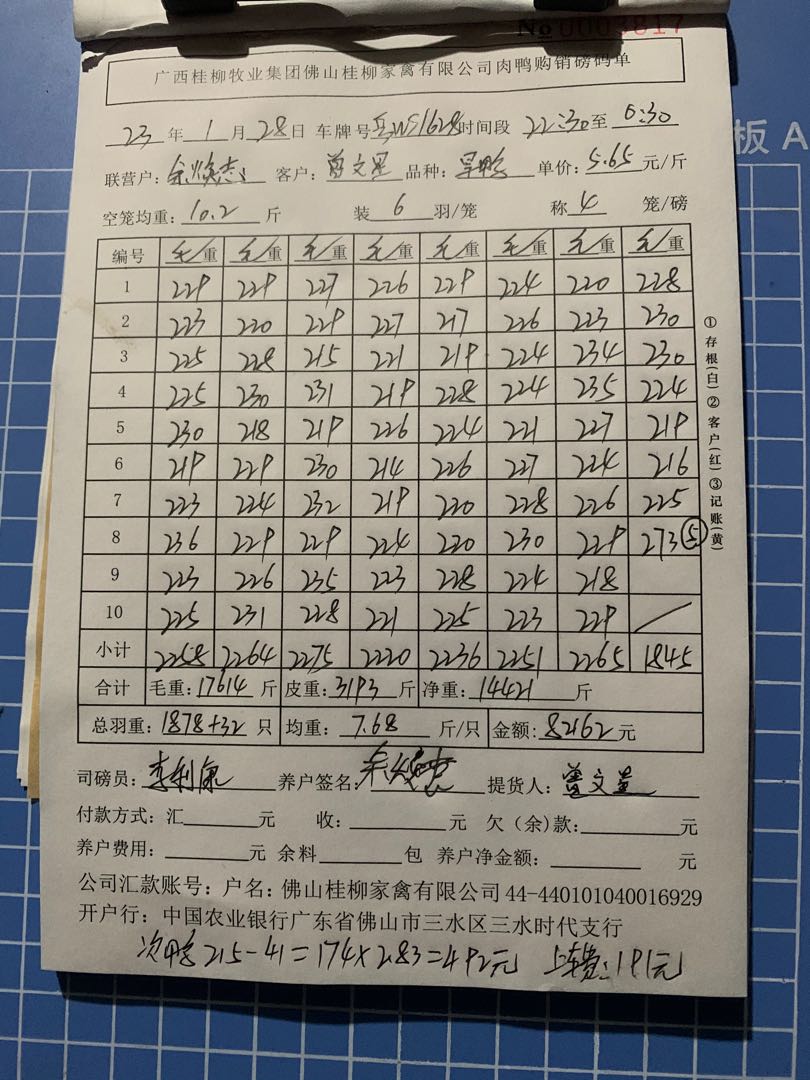 No 0003817
广西桂柳牧业集团佛山桂柳家禽有限公司肉鸭购销磅码单
23 年 1 月 28 日 车牌号 时间段 22:30 至 0:30
联营户: 余焕杰 客户: 曾文星 品种: 单价: 5.65 元/斤
空笼均重: 10.2 斤 装 6 羽/笼 称 4 笼/磅
编号 毛/重 毛/重 毛/重 毛/重 毛/重 毛/重 毛/重 毛/重
1 229 229 227 226 229 224 220 228
2 223 220 229 227 217 226 223 230
3 225 228 215 221 219 224 234 230
4 225 230 231 219 228 224 235 224
5 230 218 219 226 224 221 227 219
6 219 229 230 214 226 227 224 216
7 223 224 232 219 220 228 226 225
8 236 229 229 224 220 230 229 273 ⑤
9 223 226 235 223 228 224 218
10 225 231 228 221 225 223 229 /
小计 2258 2264 2275 2220 2236 2251 2265 1845
合计 毛重: 17614 斤 皮重: 3193 斤 净重: 14421 斤
总羽重: 1878+32 只 均重: 7.68 斤/只 金额: 82162 元
①存根(白)②客户(红)③记账(黄)
司磅员: 李利康 养户签名: 提货人: 曾文星
付款方式: 汇 元 收: 元 欠(余)款: 元
养户费用: 元 余料 包 养户净金额: 元
公司汇款账号: 户名: 佛山桂柳家禽有限公司 44-440101040016929
开户行: 中国农业银行广东省佛山市三水区三水时代支行
次鸭 215-41=174×2.83=492元 上车费: 191元
板 A